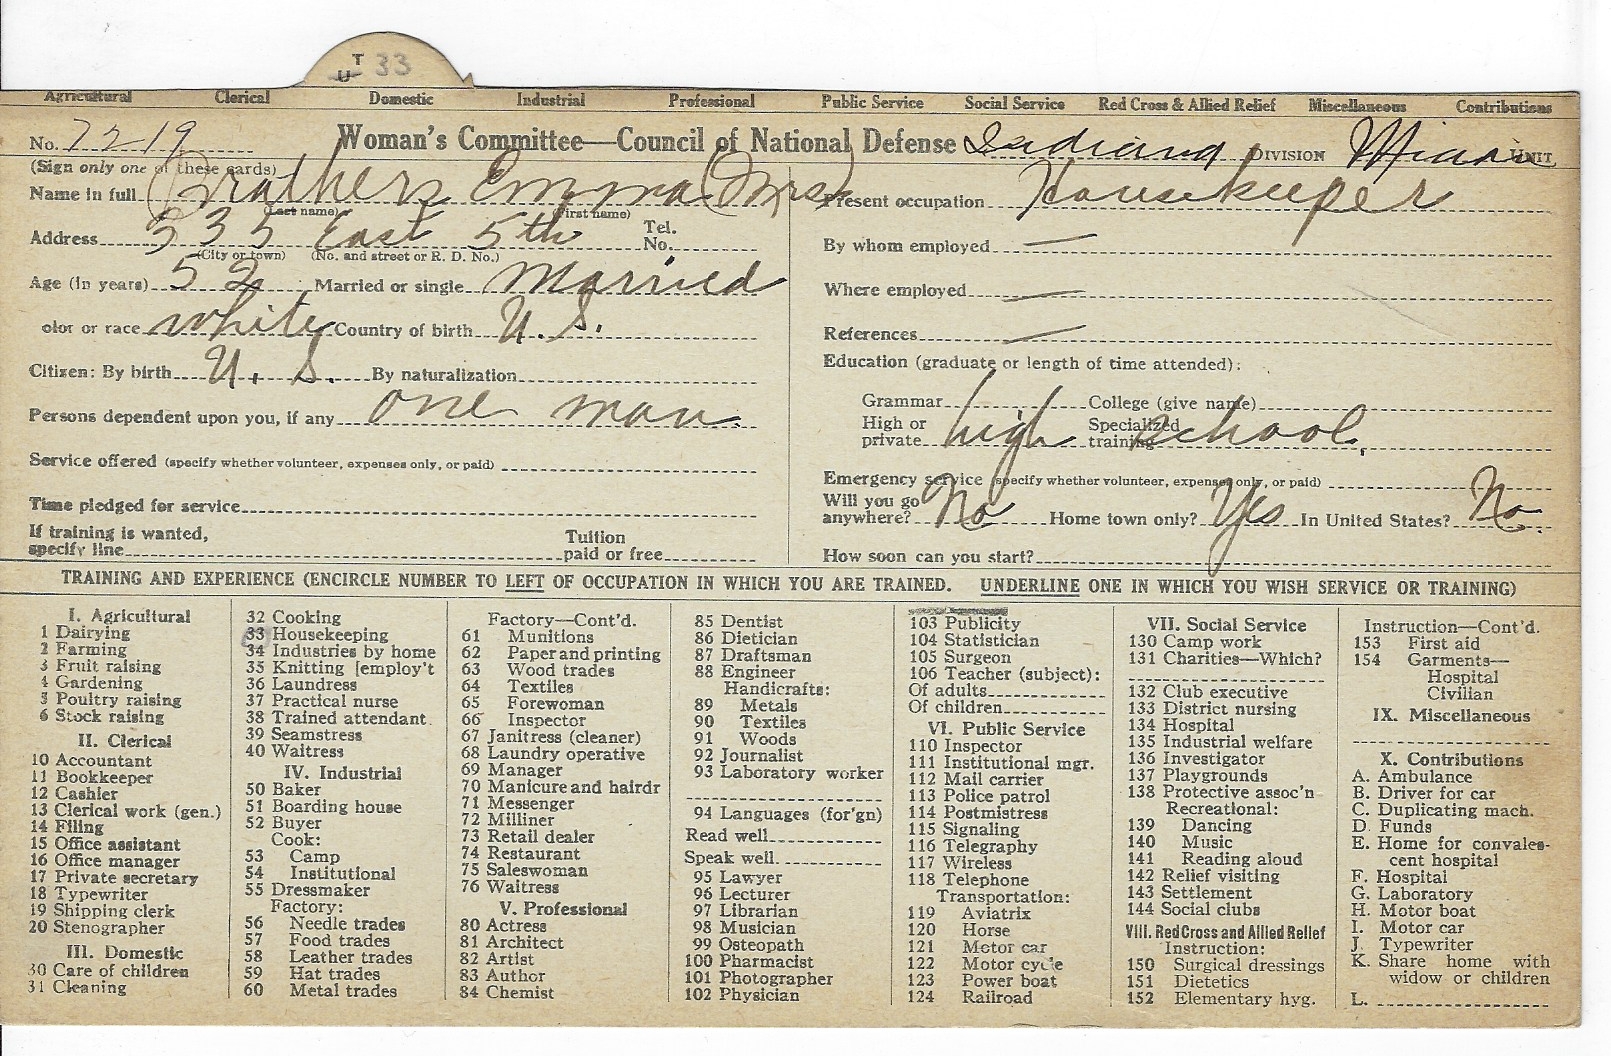 T
U 33
Agricultural Clerical Domestic Industrial Professional Public Service Social Service Red Cross & Allied Relief Miscellaneous Contributions
No. 7219 Woman's Committee—Council of National Defense Indiana DIVISION Miami UNIT
(Sign only one of these cards)
Name in full Brothers Emma (Mrs)
(Last name) (First name)
Address 335 East 5th Tel. No.
(City or town) (No. and street or R. D. No.)
Age (in years) 52 Married or single Married
olor or race white Country of birth U. S.
Citizen: By birth U. S. By naturalization
Persons dependent upon you, if any one man.
Service offered (specify whether volunteer, expenses only, or paid)
Time pledged for service
If training is wanted,
specify line Tuition paid or free
Present occupation Housekeeper
By whom employed —
Where employed —
References —
Education (graduate or length of time attended):
Grammar College (give name)
High or private high Specialized training school.
Emergency service (specify whether volunteer, expenses only, or paid)
Will you go anywhere? No Home town only? Yes In United States? No.
How soon can you start?
TRAINING AND EXPERIENCE (ENCIRCLE NUMBER TO LEFT OF OCCUPATION IN WHICH YOU ARE TRAINED. UNDERLINE ONE IN WHICH YOU WISH SERVICE OR TRAINING)
I. Agricultural
1 Dairying
2 Farming
3 Fruit raising
4 Gardening
5 Poultry raising
6 Stock raising
II. Clerical
10 Accountant
11 Bookkeeper
12 Cashier
13 Clerical work (gen.)
14 Filing
15 Office assistant
16 Office manager
17 Private secretary
18 Typewriter
19 Shipping clerk
20 Stenographer
III. Domestic
30 Care of children
31 Cleaning
32 Cooking
33 Housekeeping
34 Industries by home
35 Knitting [employ't
36 Laundress
37 Practical nurse
38 Trained attendant
39 Seamstress
40 Waitress
IV. Industrial
50 Baker
51 Boarding house
52 Buyer
Cook:
53 Camp
54 Institutional
55 Dressmaker
Factory:
56 Needle trades
57 Food trades
58 Leather trades
59 Hat trades
60 Metal trades
Factory—Cont'd.
61 Munitions
62 Paper and printing
63 Wood trades
64 Textiles
65 Forewoman
66 Inspector
67 Janitress (cleaner)
68 Laundry operative
69 Manager
70 Manicure and hairdr
71 Messenger
72 Milliner
73 Retail dealer
74 Restaurant
75 Saleswoman
76 Waitress
V. Professional
80 Actress
81 Architect
82 Artist
83 Author
84 Chemist
85 Dentist
86 Dietician
87 Draftsman
88 Engineer
Handicrafts:
89 Metals
90 Textiles
91 Woods
92 Journalist
93 Laboratory worker
94 Languages (for'gn)
Read well
Speak well.
95 Lawyer
96 Lecturer
97 Librarian
98 Musician
99 Osteopath
100 Pharmacist
101 Photographer
102 Physician
103 Publicity
104 Statistician
105 Surgeon
106 Teacher (subject):
Of adults
Of children
VI. Public Service
110 Inspector
111 Institutional mgr.
112 Mail carrier
113 Police patrol
114 Postmistress
115 Signaling
116 Telegraphy
117 Wireless
118 Telephone
Transportation:
119 Aviatrix
120 Horse
121 Motor car
122 Motor cycle
123 Power boat
124 Railroad
VII. Social Service
130 Camp work
131 Charities—Which?
132 Club executive
133 District nursing
134 Hospital
135 Industrial welfare
136 Investigator
137 Playgrounds
138 Protective assoc'n
Recreational:
139 Dancing
140 Music
141 Reading aloud
142 Relief visiting
143 Settlement
144 Social clubs
VIII. Red Cross and Allied Relief
Instruction:
150 Surgical dressings
151 Dietetics
152 Elementary hyg.
Instruction—Cont'd.
153 First aid
154 Garments—
Hospital
Civilian
IX. Miscellaneous
X. Contributions
A. Ambulance
B. Driver for car
C. Duplicating mach.
D. Funds
E. Home for convales-
cent hospital
F. Hospital
G. Laboratory
H. Motor boat
I. Motor car
J. Typewriter
K. Share home with
widow or children
L.